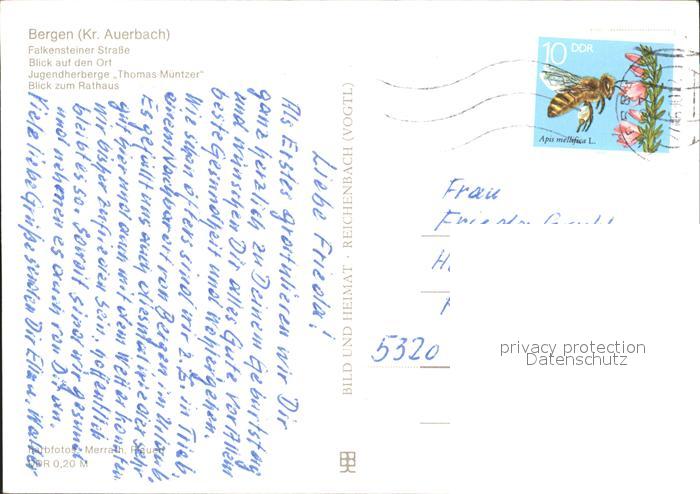 Bergen (Kr. Auerbach)
Falkensteiner Straße
Blick auf den Ort
Jugendherberge „Thomas Müntzer"
Blick zum Rathaus
Liebe Frieda!
Als Erstes gratulieren wir Dir
ganz herzlich zu Deinem Geburtstag
und wünschen Dir alles Gute vor Allem
beste Gesundheit und Wohlergehen.
Wie schon öfters sind wir z. Z. in Trieb,
einem Nachbarort von Bergen in Urlaub.
Es gefällt uns auch diesmal wieder sehr
gut hier und auch mit dem Wetter konnten
wir bisher zufrieden sein, hoffentlich
bleibt es so. Soweit sind wir gesund
und nehmen es auch von Dir an.
Viele liebe Grüße senden Dir Ellen, Walter
Farbfotos: Merrath,
DDR 0,20 M
BILD UND HEIMAT · REICHENBACH (VOGTL)
10 DDR
Apis mellifica L.
Frau
Frieda
5320
privacy protection
Datenschutz